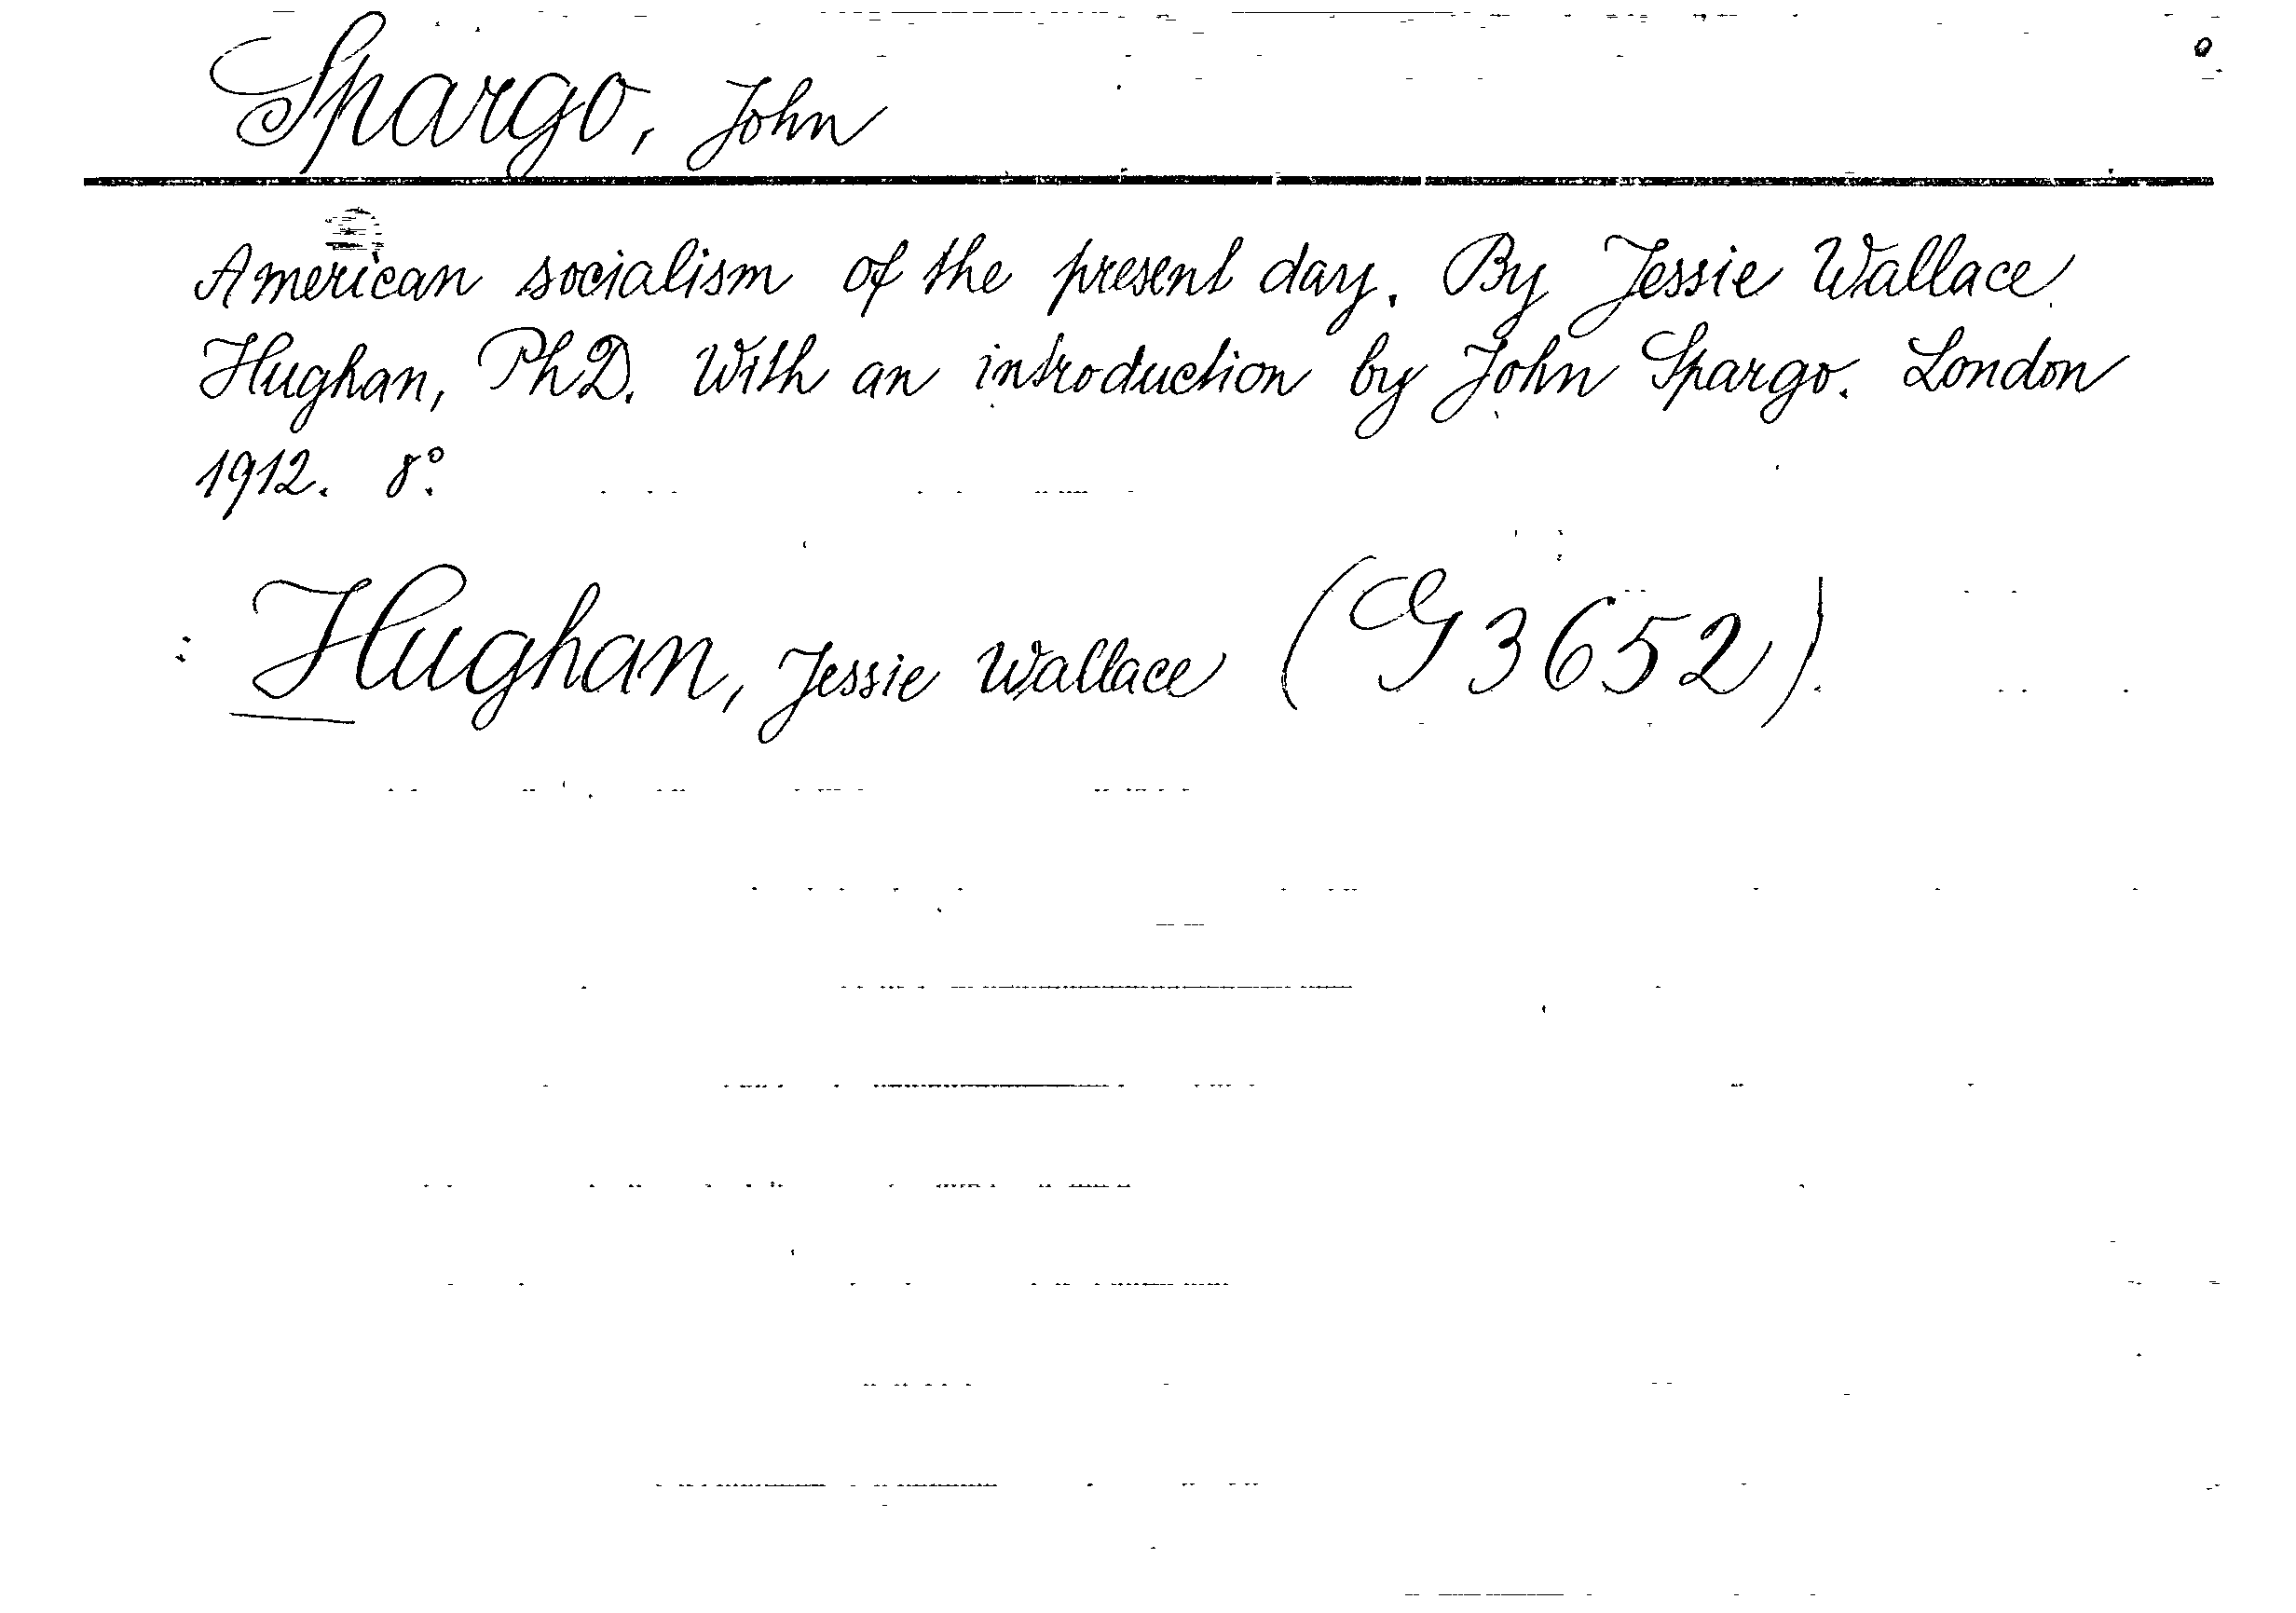 Spargo, John
American socialism of the present day. By Jessie Wallace
Hughan, PhD. With an introduction by John Spargo. London
1912. 8°.
: Hughan, Jessie Wallace (G 3652).